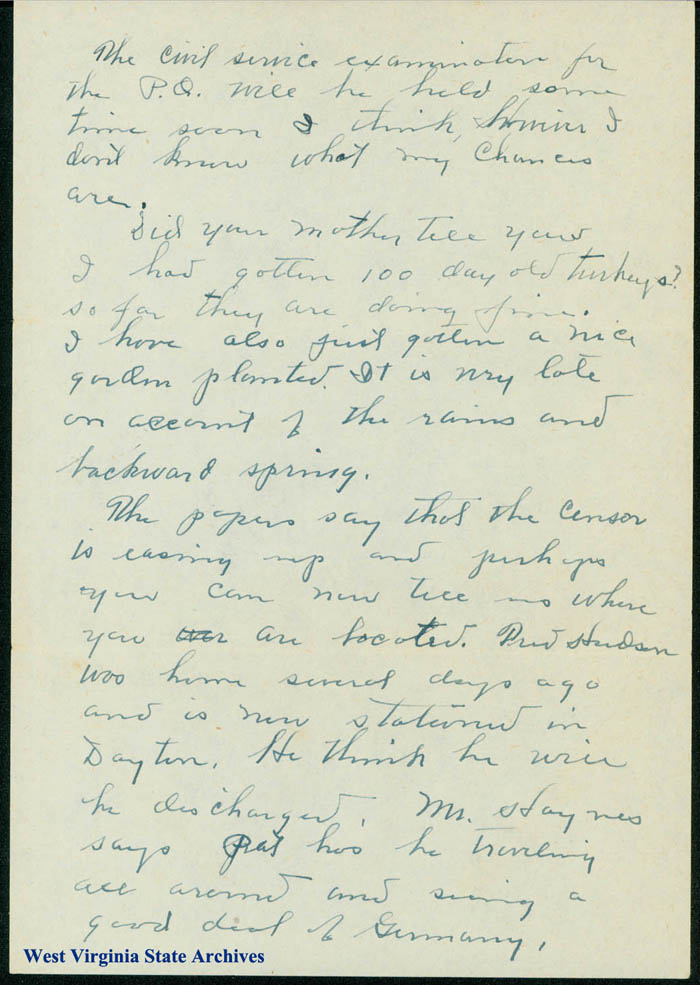 The civil service examination for
the P.O. will be held some
time soon I think, however I
don't know what my chances
are.
Did your mother tell you
I had gotten 100 day old turkeys?
so far they are doing fine.
I have also just gotten a nice
garden planted. It is very late
on account of the rains and
backward spring.
The papers say that the censor
is easing up and perhaps
you can now tell us where
you are located. Fred Hudson
was home several days ago
and is now stationed in
Dayton. He think he will
be discharged. Mr. Haynes
says has be traveling
all around and seeing a
good deal of Germany.
West Virginia State Archives